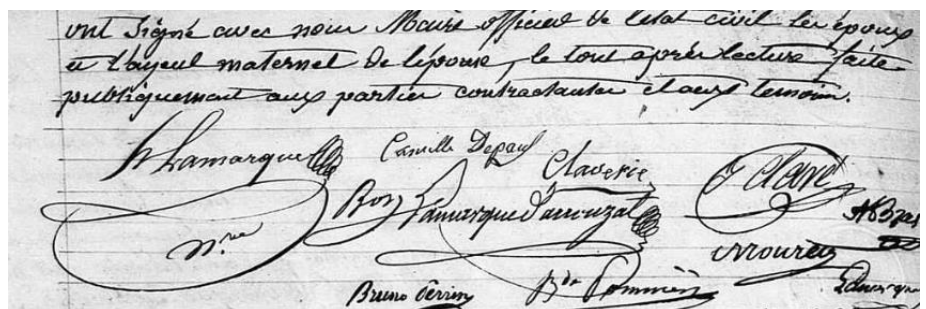 ont signé avec nous Maire officier de l'état civil les époux
et l'ayeul maternel de l'épouse, le tout après lecture faite
publiquement aux parties contractantes et aux temoins.
Lamarque
Camille Depaul
Claverie
Bon
Lamarque d'arrouzat
Bruno Perrin